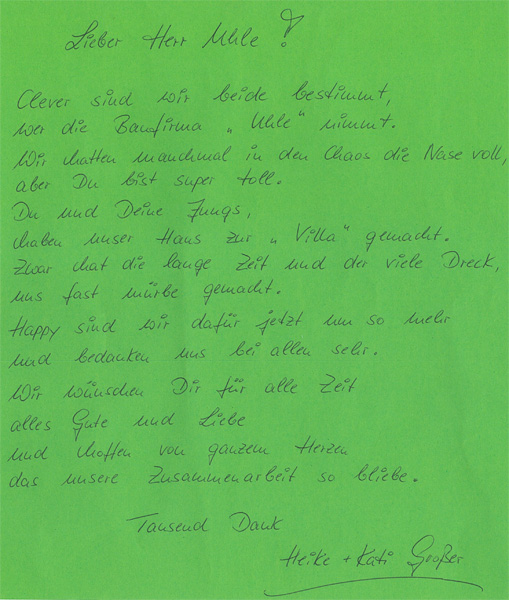 Lieber Herr Uhle!
Clever sind wir beide bestimmt,
wer die Baufirma „Uhle" nimmt.
Wir hatten manchmal in den Chaos die Nase voll,
aber Du bist super toll.
Du und Deine Jungs,
haben unser Haus zur „Villa" gemacht.
Zwar hat die lange Zeit und der viele Dreck,
uns fast mürbe gemacht.
Happy sind wir dafür jetzt um so mehr
und bedanken uns bei allen sehr.
Wir wünschen Dir für alle Zeit
alles Gute und Liebe
und hoffen von ganzem Herzen
das unsere Zusammenarbeit so bliebe.
Tausend Dank
Heike + Kati Großer